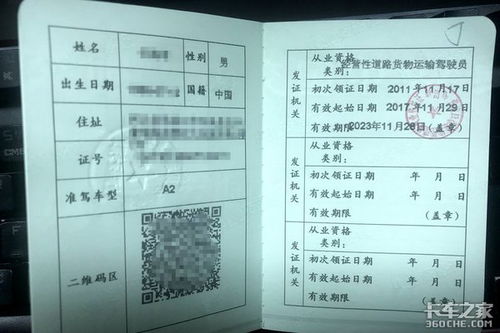 姓名 性别 男
出生日期 国籍 中国
住址
证号
准驾车型 A2
二维码区
发证机关
从业资格类别: 经营性道路货物运输驾驶员
初次领证日期 2011年11月17日
有效起始日期 2017年11月29日
有效期限 2023年11月28日(盖章)
发证机关
从业资格类别:
初次领证日期 年 月 日
有效起始日期 年 月 日
有效期限 (盖章)
发证机关
从业资格类别:
初次领证日期 年 月 日
有效起始日期 年 月 日
有效期限 (盖章)
卡车之家
360che.com